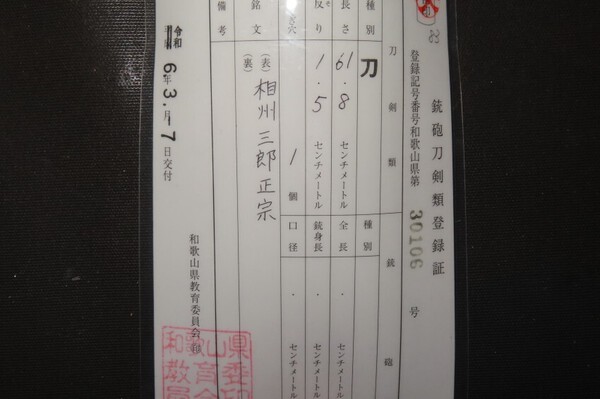 銃砲刀剣類登録証
登録記号番号和歌山県第 30106 号
刀剣類
銃砲
種別 刀
種別
長さ 61.8 センチメートル
全長 ・ センチメートル
反り 1.5 センチメートル
銃身長 ・ センチメートル
穴 1 個
口径 ・ センチメートル
銘文 (表) 相州三郎正宗
(裏)
備考
令和 6年3月-7日交付
和歌山県教育委員会 ㊞
和歌山県
教育委
員会印